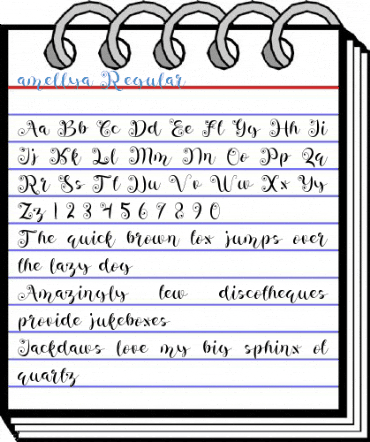 amellya Regular
Aa Bb Cc Dd Ee Ff Gg Hh Ii
Jj Kk Ll Mm Nn Oo Pp Qq
Rr Ss Tt Uu Vv Ww Xx Yy
Zz 1 2 3 4 5 6 7 8 9 0
The quick brown fox jumps over
the lazy dog
Amazingly few discotheques
provide jukeboxes
Jackdaws love my big sphinx of
quartz